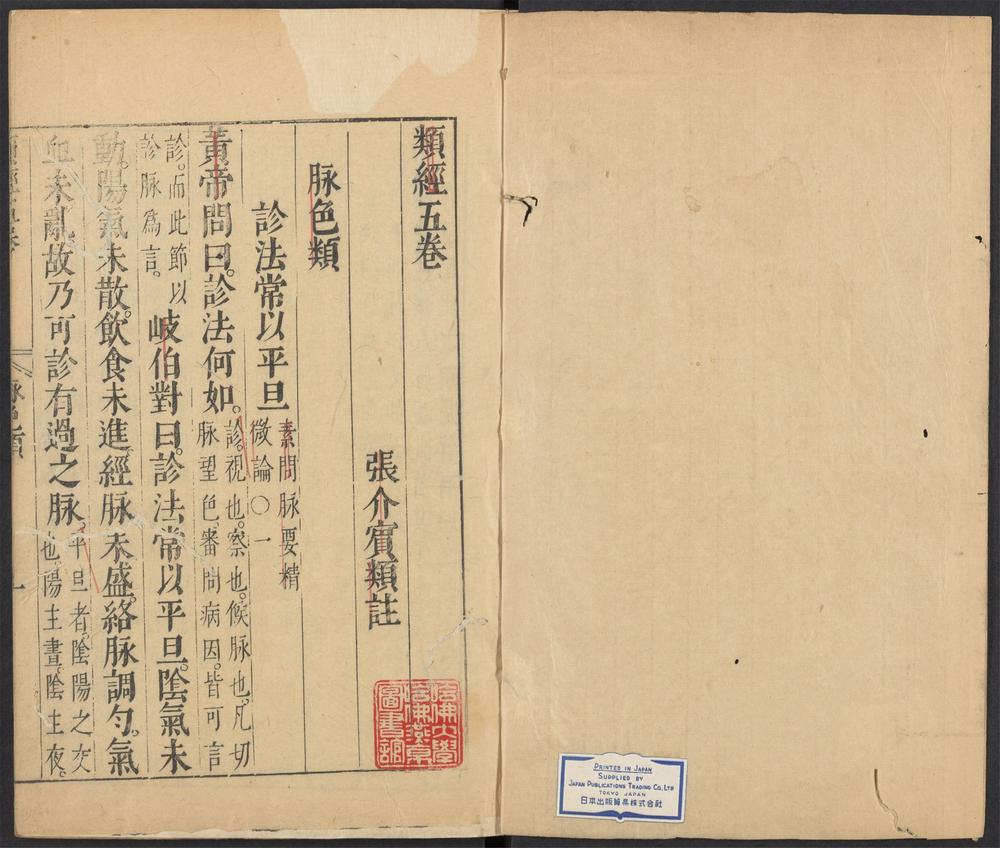 類經五卷
張介賓類註
脉色類
診法常以平旦
素問脉要精
微論○一
黃帝問曰。診法何如。
診。視也。察也。候脉也。凡切
脉望色。審問病因。皆可言
診。而此節以
診脉爲言。
岐伯對曰。診法常以平旦。陰氣未
動。陽氣未散。飲食未進。經脉未盛。絡脉調勻。氣
血未亂。故乃可診有過之脉。
平旦者。陰陽之交
也。陽主晝。陰主夜。
哈佛大學
哈佛燕京
圖書館
PRINTED IN JAPAN
SUPPLIED BY
JAPAN PUBLICATIONS TRADING CO., LTD
TOKYO JAPAN
日本出版貿易株式会社